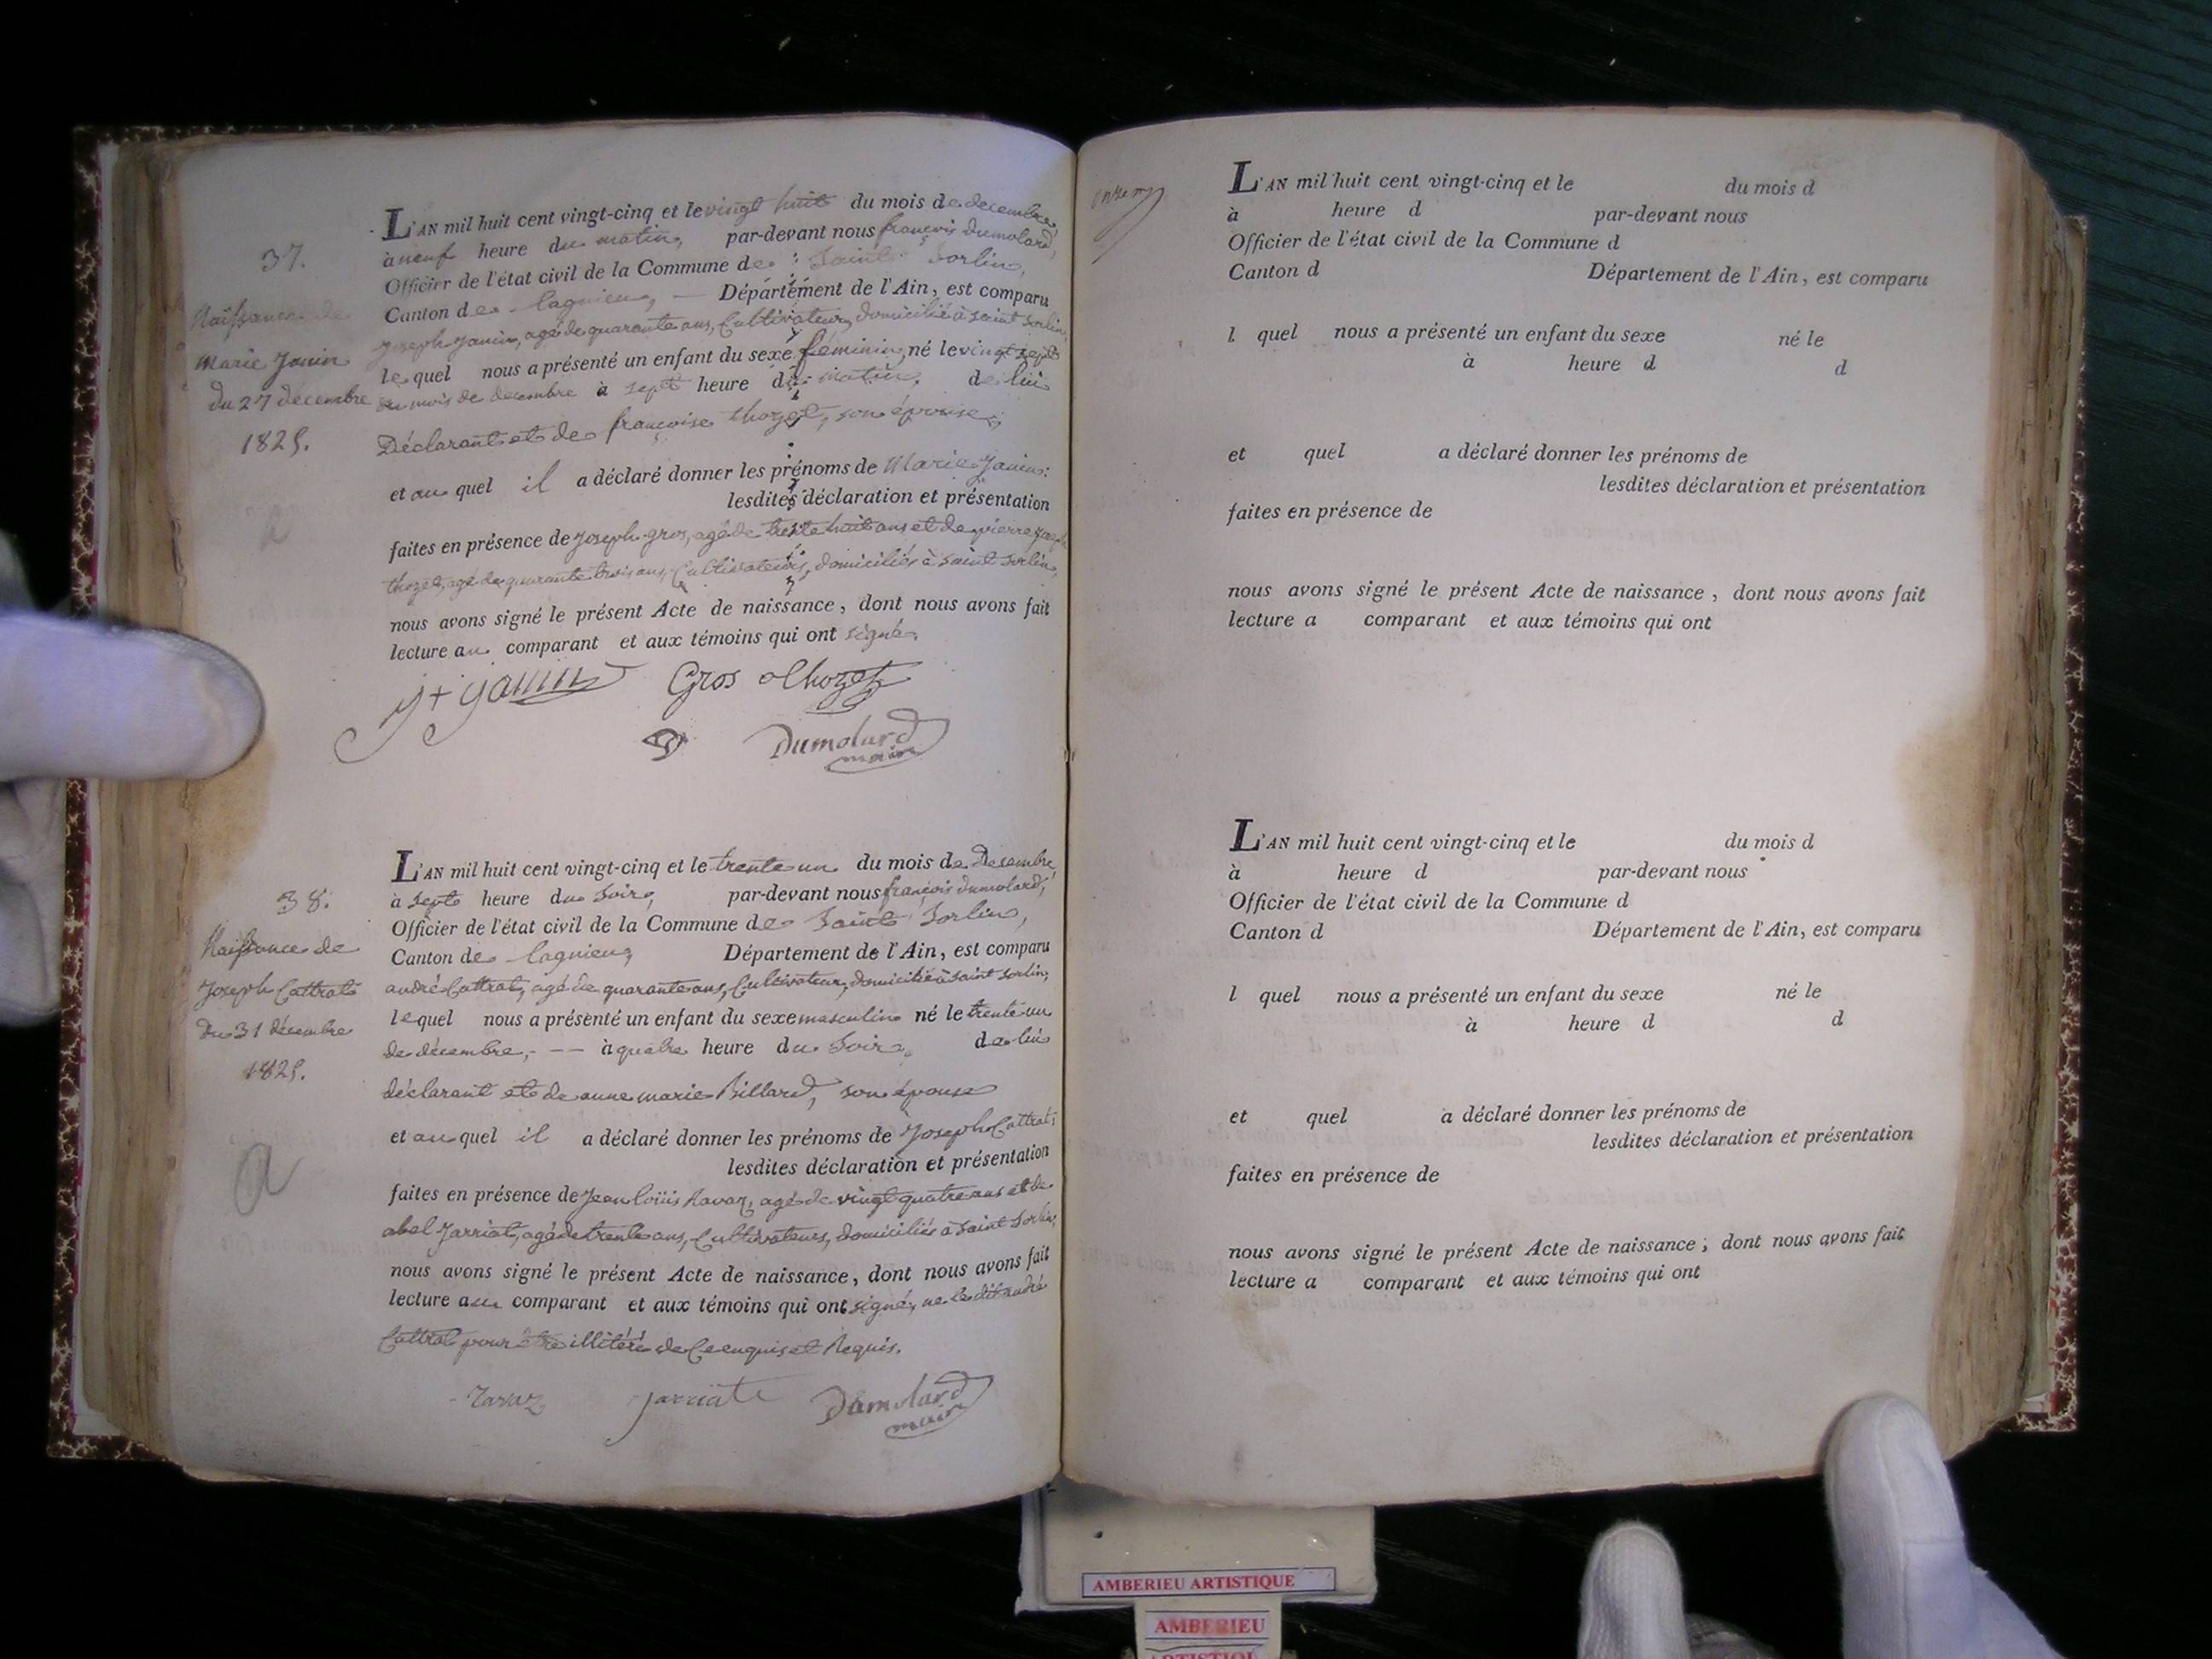 37.
Naissance de
Marie Janin
du 27 décembre
1825.
L'AN mil huit cent vingt-cinq et le vingt huit du mois de decembre,
à neuf heure du matin, par-devant nous françois dumolard,
Officier de l'état civil de la Commune de Saint Sorlin,
Canton de lagnieu, — Département de l'Ain, est comparu
joseph janin, agé de quarante ans, Cultivateur, domicilié à saint sorlin,
lequel nous a présenté un enfant du sexe féminin, né le vingt sept
du mois de decembre à sept heure du matin, de lui
Déclarant et de françoise thozet, son épouse,
et au quel il a déclaré donner les prénoms de Marie Janin:
lesdites déclaration et présentation
faites en présence de joseph gros, agé de trente huit ans et de pierre
thozet, agé de quarante trois ans, Cultivateurs, domiciliés à saint sorlin,
nous avons signé le présent Acte de naissance, dont nous avons fait
lecture au comparant et aux témoins qui ont signé.
janin Gros thozet
Dumolard
maire
38.
Naissance de
Joseph Cattrat
du 31 décembre
1825.
L'AN mil huit cent vingt-cinq et le trente un du mois de Decembre,
à sept heure du soir, par-devant nous françois dumolard,
Officier de l'état civil de la Commune de Saint Sorlin,
Canton de lagnieu, Département de l'Ain, est comparu
andré Cattrat, agé de quarante ans, Cultivateur, domicilié à saint sorlin,
lequel nous a présenté un enfant du sexe masculin né le trente un
de décembre, — à quatre heure du Soir, de lui
déclarant et de anne marie Billard, son épouse
et au quel il a déclaré donner les prénoms de Joseph Cattrat,
lesdites déclaration et présentation
faites en présence de Jean loüis Ravaz, agé de vingt quatre ans et de
abel Jarriat, agé de trente ans, Cultivateurs, domiciliés à saint Sorlin,
nous avons signé le présent Acte de naissance, dont nous avons fait
lecture au comparant et aux témoins qui ont signé, ne le dit andré
Cattrat pour être illitéré de Ce enquis et Requis.
Ravaz Jarriat Dumolard
maire
L'AN mil huit cent vingt-cinq et le du mois d
à heure d par-devant nous
Officier de l'état civil de la Commune d
Canton d Département de l'Ain, est comparu
l quel nous a présenté un enfant du sexe né le
à heure d d
et quel a déclaré donner les prénoms de
lesdites déclaration et présentation
faites en présence de
nous avons signé le présent Acte de naissance, dont nous avons fait
lecture a comparant et aux témoins qui ont
L'AN mil huit cent vingt-cinq et le du mois d
à heure d par-devant nous
Officier de l'état civil de la Commune d
Canton d Département de l'Ain, est comparu
l quel nous a présenté un enfant du sexe né le
à heure d d
et quel a déclaré donner les prénoms de
lesdites déclaration et présentation
faites en présence de
nous avons signé le présent Acte de naissance; dont nous avons fait
lecture a comparant et aux témoins qui ont
AMBERIEU ARTISTIQUE
AMBERIEU
ARTISTIQUE